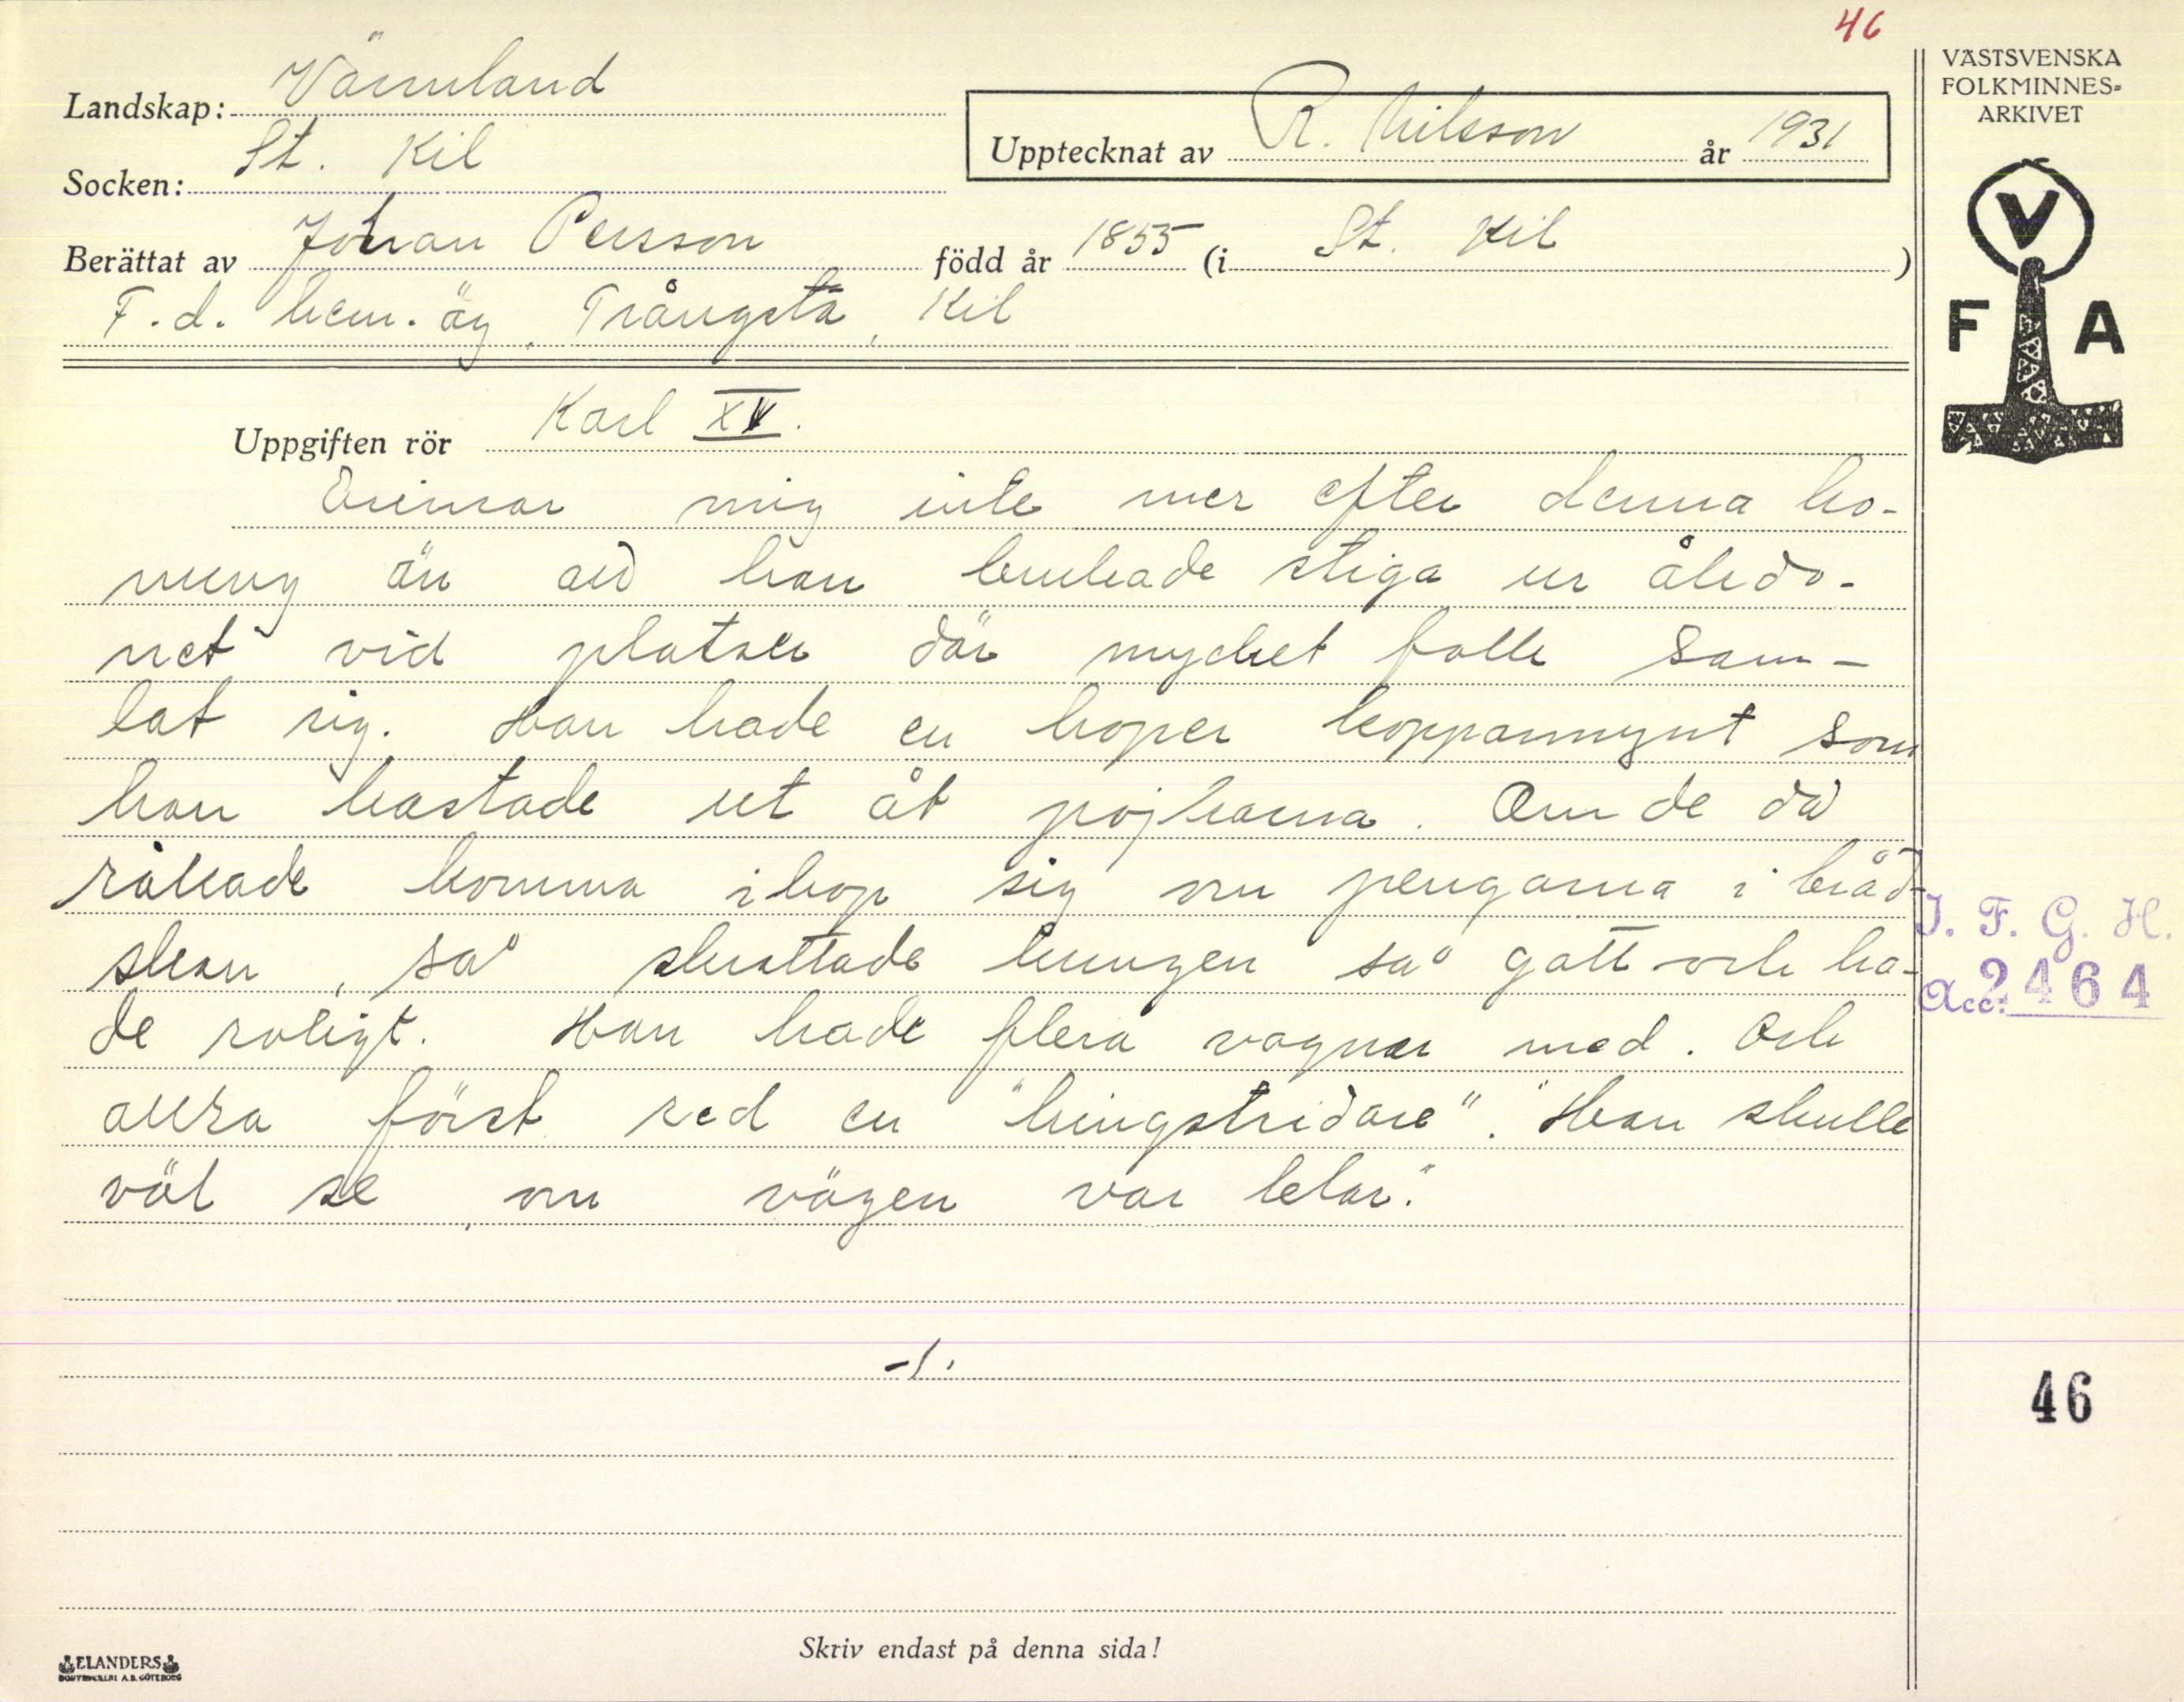 46
VÄSTSVENSKA
FOLKMINNES-
ARKIVET
Landskap: Värmland
Upptecknat av R. Nilsson år 1931
Socken: St. Kil
Berättat av Johan Persson född år 1855 (i St. Kil )
F.d. hem.äg, Trångsta, Kil
V
F A
Uppgiften rör Karl XV.
Minar mig inte mer efter denna ko-
nung än att han brukade stiga ur åkdo-
net vid platser där mycket folk sam-
lat sig. Han hade en hoper kopparmynt som
han kastade ut åt pojkarna. Om de då
råkade komma ihop sig om pengarna i bråd-
skan, så skrattade kungen så gott och ha-
de roligt. Han hade flera vagnar med. Och
allra först red en "kungstridare". "Han skulle
väl se, om vägen var klar."
-/.
J. F. G. H.
Acc: 2464
46
Skriv endast på denna sida!
ELANDERS
BOKTRYCKERI A.B. GÖTEBORG